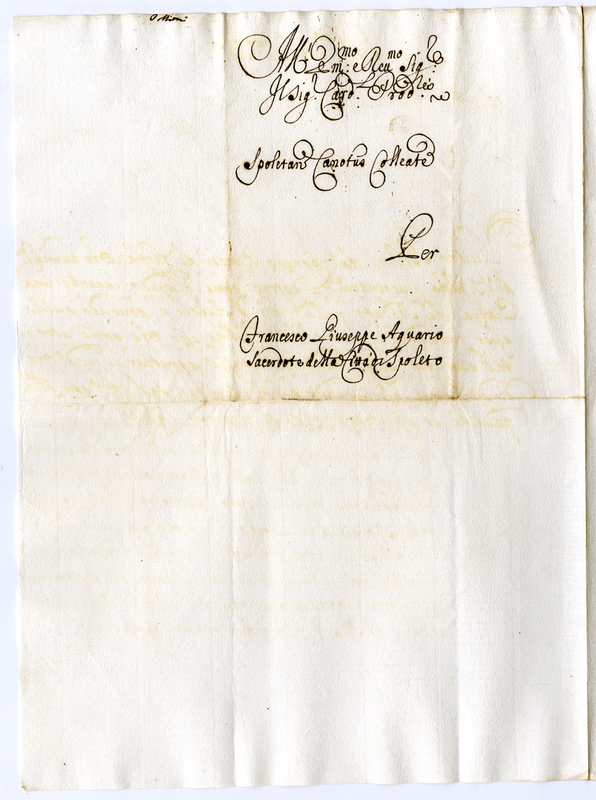 All'Em:mo e Reu:mo Sig:re
Il Sig:r Card:l Prod:rio
Spoletan Canotus Colleate
Per
Francesco Giuseppe Aquario
Sacerdote della Città di Spoleto